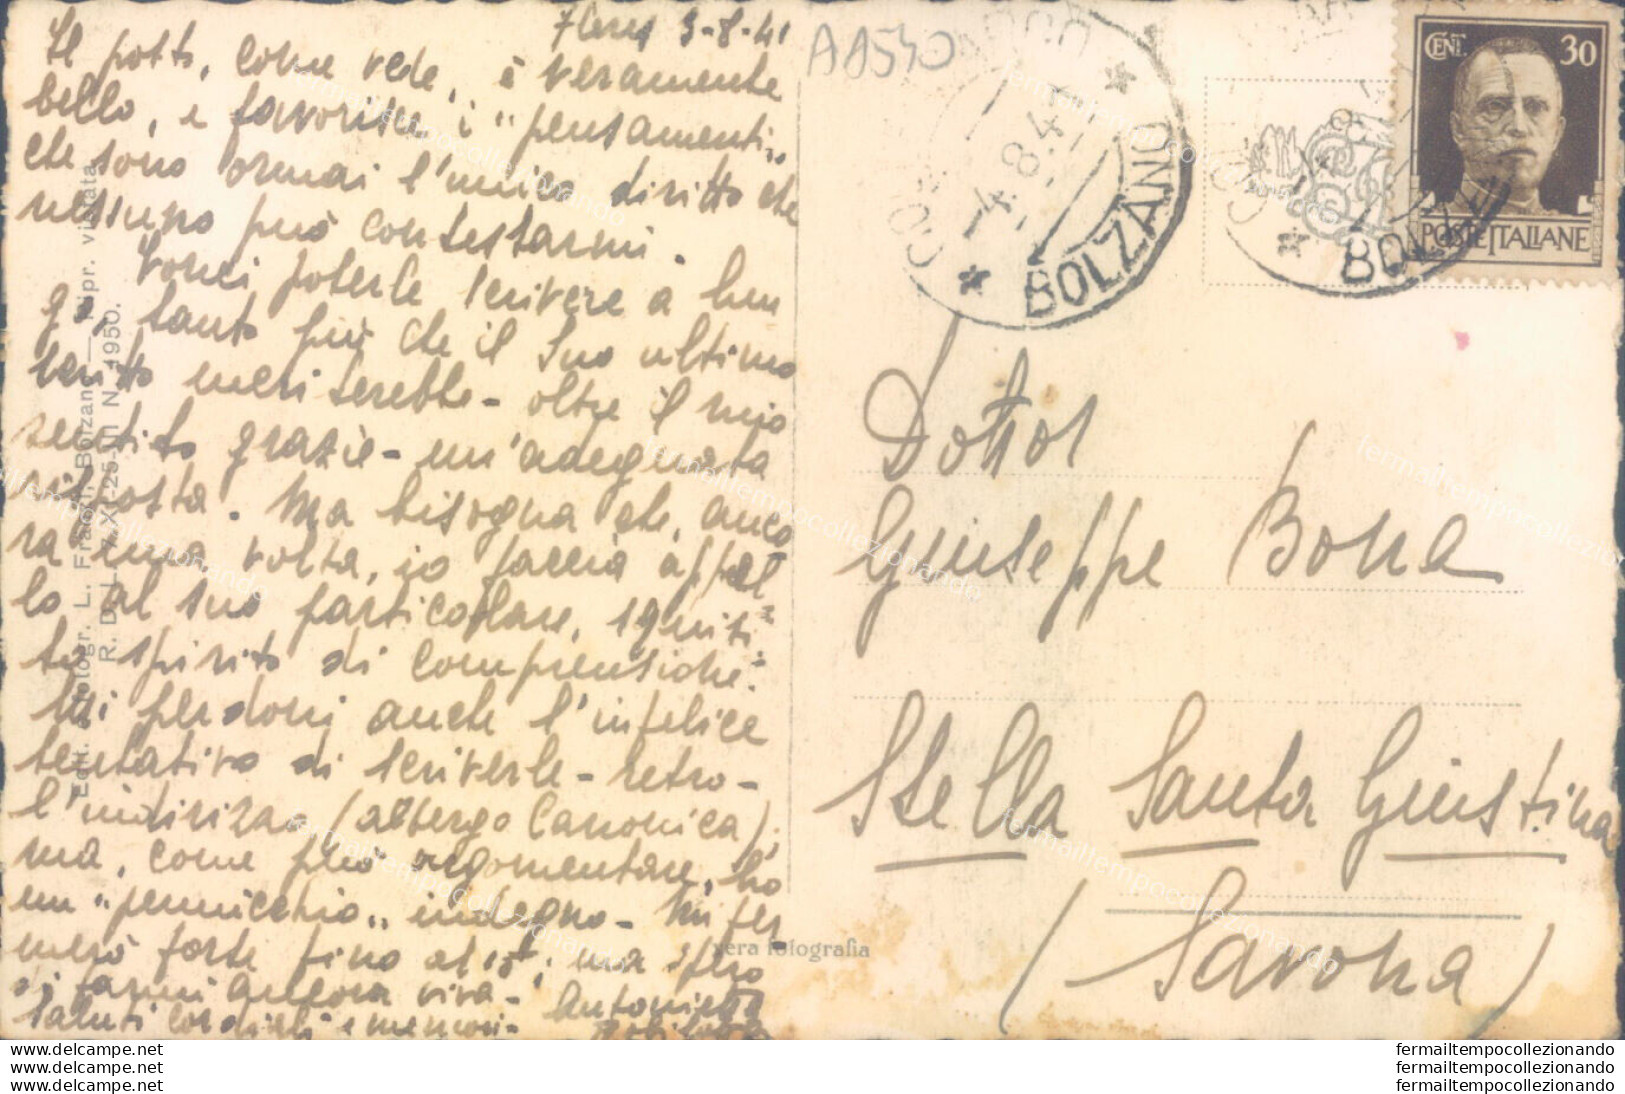 Fleres 3-8-41
Il posto, come vede, è veramente
bello, e favorisce i "pensamenti"
che sono ormai l'unico diritto che
nessuno può contestarmi.
Vorrei poterle scrivere a lun
go, tanto più che il Suo ultimo
scritto meriterebbe - oltre il mio
sentito grazie - un'adeguata
risposta. Ma bisogna che, anco
ra una volta, io faccia appel=
lo al suo particolare, squisi=
to spirito di comprensione.
Mi perdoni anche l'infelice
tentativo di scriverle - retro -
l'indirizzo (albergo Canonica);
ma, come può argomentare, ho
un "pennicchio" indegno - Mi fer
merò forse fino al 15; ma spero
di farmi ancora viva -
saluti cordiali e memori - Antonietta
AA540
Dottor
Giuseppe Bona
Stella Santa Giustina
(Savona)
CENT. 30
POSTE ITALIANE
4.8.41
BOLZANO
BOLZANO
Edit. Fotogr. L. Fränzl. Bolzano — Ripr. vietata
R. D. L. 7-XI-25-III N. 1950.
vera fotografia
fermailtempocollezionando
www.delcampe.net fermailtempocollezionando
www.delcampe.net fermailtempocollezionando
www.delcampe.net fermailtempocollezionando